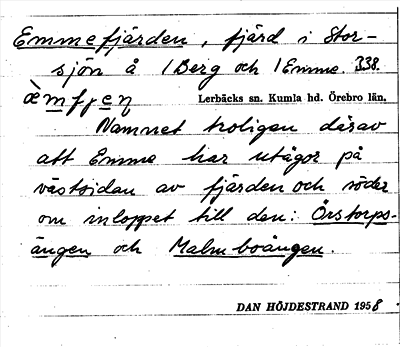 Emmefjärden, fjärd i Stor-
sjön å 1 Berg och 1 Emme. 338.
Lerbäcks sn. Kumla hd. Örebro län.
Namnet troligen därav
att Emme har utägor på
västsidan av fjärden och söder
om inloppet till den: Örstorps-
ängen och Malmboängen.
DAN HÖJDESTRAND 1958